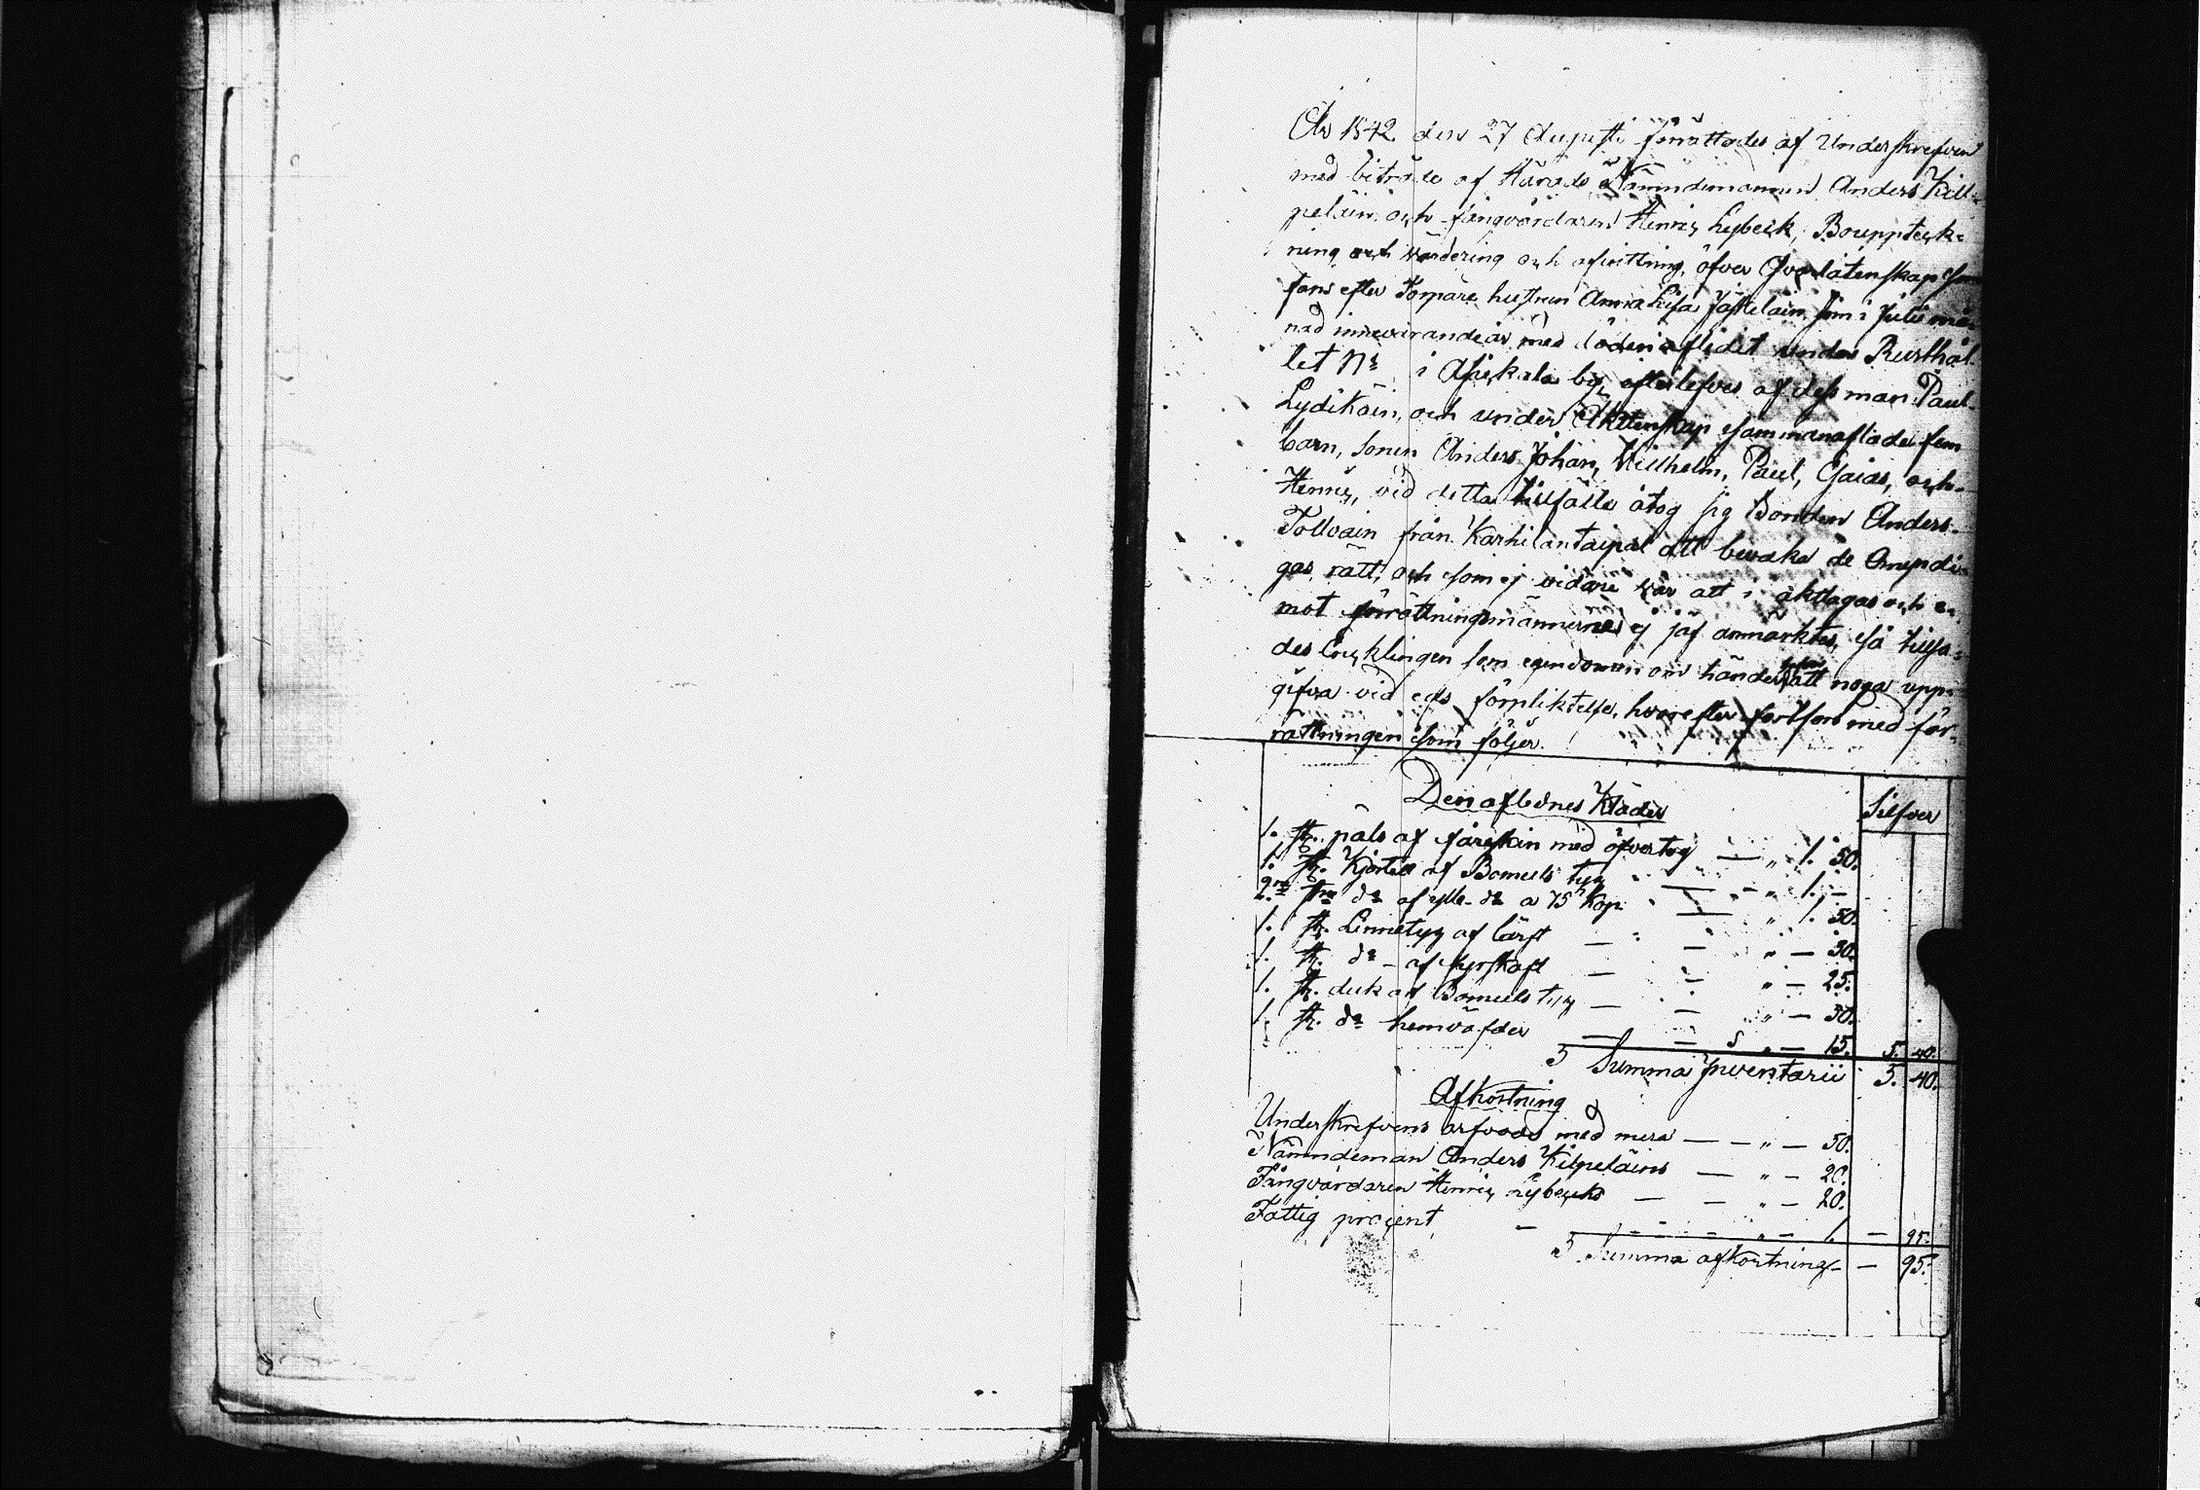 År 1842 den 27 Augusti förrättades af Underskrefven
med biträde af Härads Nämndemannen Anders Kill-
peläin och fångvårdaren Henric Lybeck, Bouppteck-
ning och värdering och afvittning, öfver qvarlåtenskapen som
fans efter Torpare hustrun Anna Lisa som i Julii må-
nad innevarande år med döden aflidit under Rusthål-
let No i by, efterlefves af dess man Paul
Lydikäin, och under Äktenskap sammanaflade fem
barn, Sonen Anders Johan, Willhelm, Paul, Esaias, och
Henric, vid detta tillfälle åtog sig Bonden Anders
Tolvain från Karhilantaipal att bevaka de Omyndi-
gas rätt, och som ej vidare var att i akttagas och e-
mot förrättningsmännerne ej jäf anmärktes, så tillsa-
des Enklingen som egendomen om händer hafver att noga upp-
gifva vid eds förpliktelse, hvarefter fortfors med för-
rättningen som följer.
Den aflednes Kläder
Silfver
1. st. päls af fårskin med öfvertyg — " 1. 50.
1. st. Kjortel af Bomuls tyg — " 1. —
2ne st. do af ylle do a 75 kop. — " 1. 50.
1. st. Linnetyg af lärft — — " — 30.
1. st. do — af — — " — 25.
1. st. duk af Bomuls tyg — — " — 30.
1. st. do hemväfder — — S " — 15. 5. 40.
S Summa Inventarii 5. 40.
Afkortning
Underskrefvens arfvode med mera — — " — 50.
Nämndeman Anders Kilpeläins — " — 20.
Fångvårdaren Henric Lybecks — — " — 20.
Fattig procent — — — — — " — 95.
S Summa afkortning — — 95.